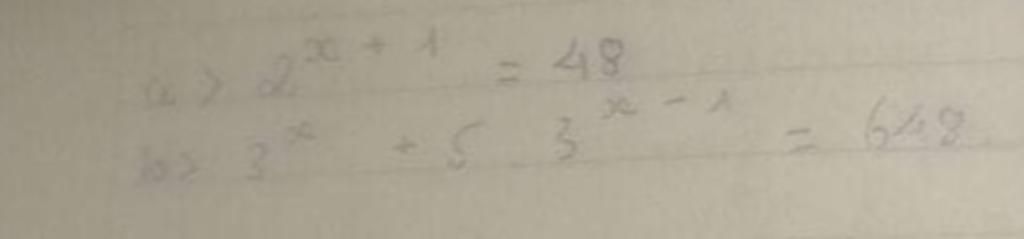 a> 2^{x + 1} = 48
b> 3^{x} + 5 3^{x - 1} = 648